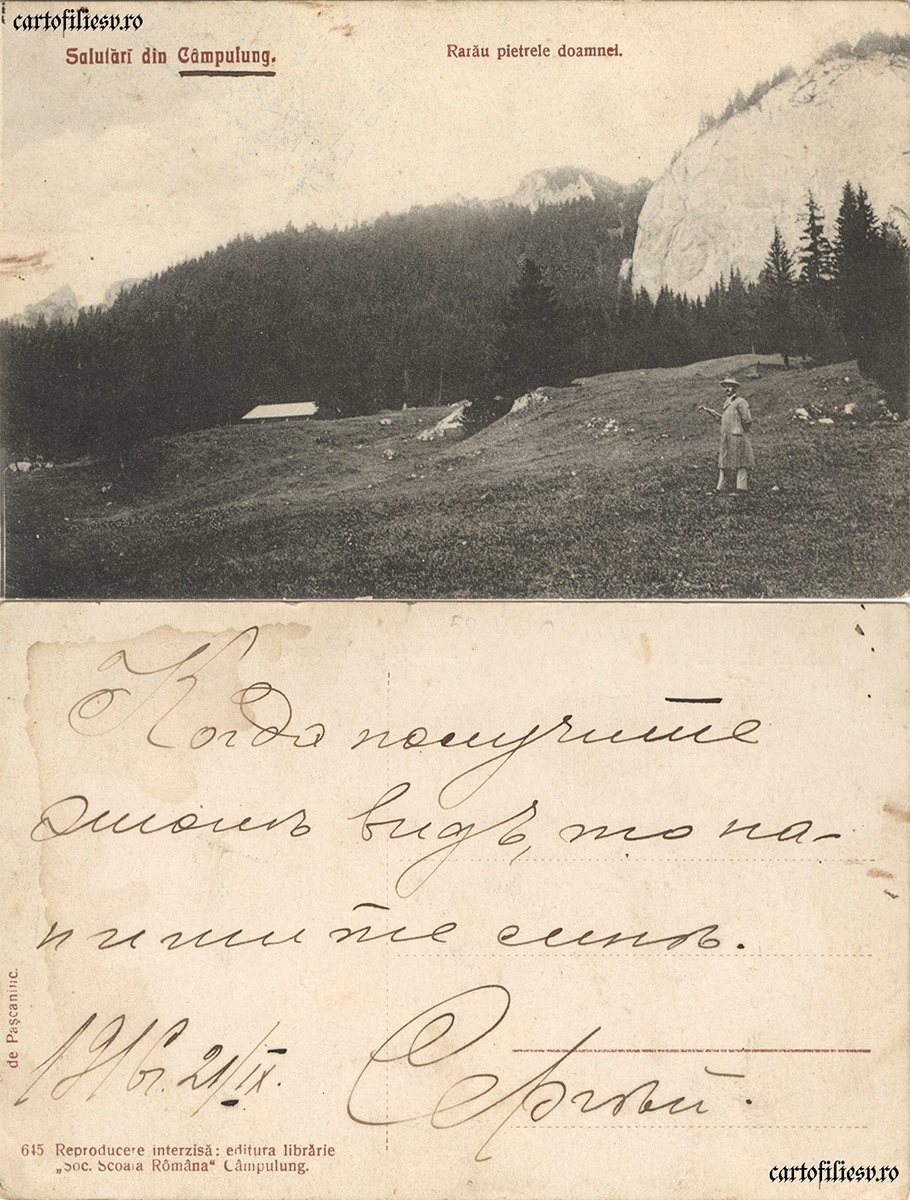 cartofiliesv.ro
Salutări din Câmpulung.
Rarău pietrele doamnei.
Когда получите
этотъ видъ, то на-
пишите мнѣ.
1916г. 21/IX.
Сергѣй.
de Paşcaniuc.
645 Reproducere interzisă: editura librărie
„Soc. Scoala Română“ Câmpulung.
cartofiliesv.ro